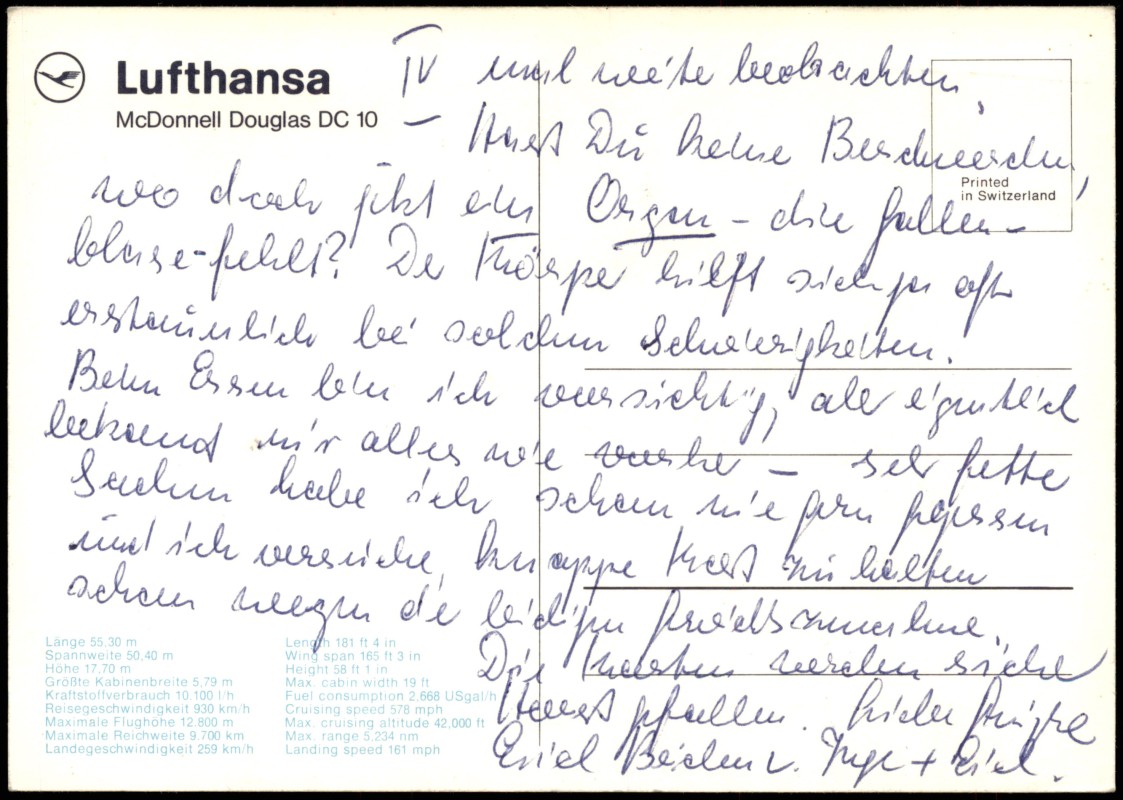 Lufthansa
McDonnell Douglas DC 10
Printed
in Switzerland
IV und weiter beobachten.
– Hast Du keine Beschwerden,
wo doch jetzt ein Organ – die Gallen-
blase – fehlt? Der Körper hilft sich ja oft
erstaunlich bei solchen Schwierigkeiten.
Beim Essen bin ich vorsichtig, aber eigentlich
bekommt mir alles wie vorher – sehr fette
Sachen habe ich schon nie gern gegessen
und ich versuche, knappe Kost zu halten
schon wegen der leidigen Gewichtszunahme.
Die Karten werden sicher
Horst gefallen. Liebe Grüße
Euch Beiden v. Inge +
Länge 55,30 m
Spannweite 50,40 m
Höhe 17,70 m
Größte Kabinenbreite 5,79 m
Kraftstoffverbrauch 10.100 l/h
Reisegeschwindigkeit 930 km/h
Maximale Flughöhe 12.800 m
Maximale Reichweite 9.700 km
Landegeschwindigkeit 259 km/h
Length 181 ft 4 in
Wing span 165 ft 3 in
Height 58 ft 1 in
Max. cabin width 19 ft
Fuel consumption 2,668 USgal/h
Cruising speed 578 mph
Max. cruising altitude 42,000 ft
Max. range 5,234 nm
Landing speed 161 mph